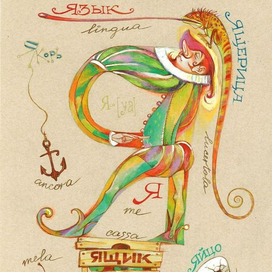 ЯЗЫК
lingua
ЯЩЕРИЦА
lucertola
Якорь
ancora
Я-[ya]
Я
me
cassa
ЯЩИК
mela
ЯЙЦО